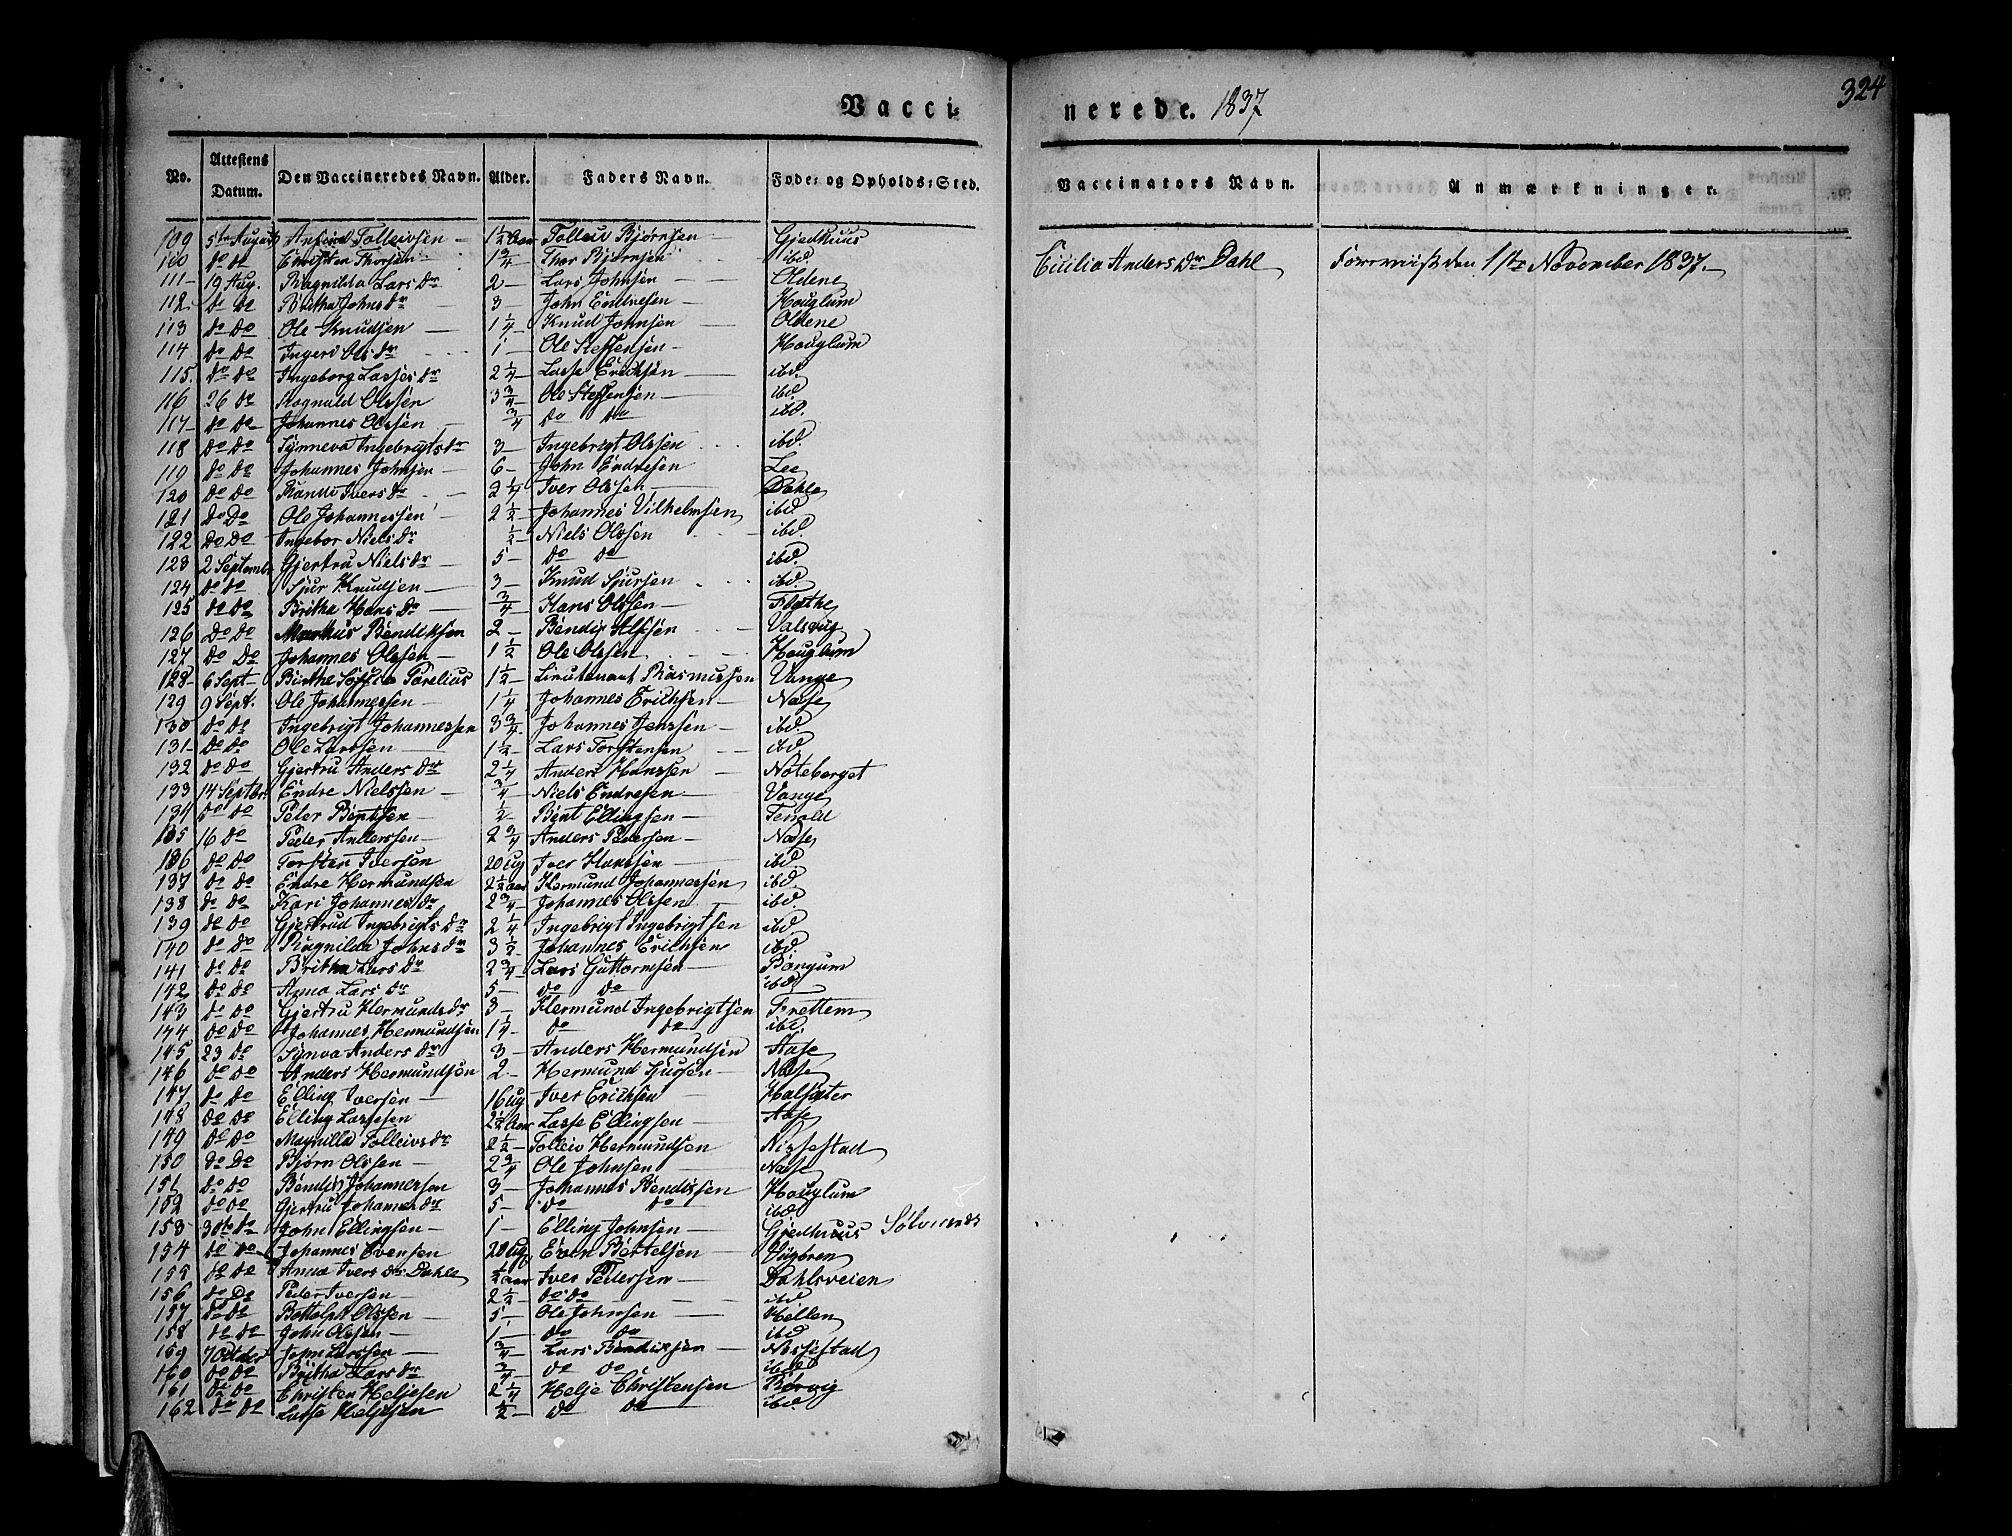 324
Vacci- nerede. 1837
No. Attestens Datum. Den Vaccineredes Navn. Alder. Faders Navn. Føde- og Opholds-Sted. Vaccinators Navn. Anmærkninger.
109 5te August Anfind Tolleivsen 1½ Aar Tolleiv Bjørnsen Gjedhuus
110 do do Christen Thorsen 1¾ Thor Bjørnsen ibd. Cicilia Anders Dr Dahl Foremist den 1ste November 1837.
111 19 Aug. Ragnilda Lars dr 2 Lars Johnsen Oldene
112 do do Britha Johns dr 3 John Endresen Houglum
113 do do Ole Knudsen 1¼ Knud Johnsen Oldene
114 do do Ingeri Ols dr 1 Ole Steffensen Houglum
115. do do Ingeborg Lasses dr 2¼ Lasse Erichsen ibd.
116 26 do Rognald Olssen 3¾ Ole Steffensen ibd.
117 do do Johannes Olssen ¾ do do ibd.
118 do do Synneva Ingebrigts dr 3 Ingebrigt Olssen ibd.
119 do do Johannes Johnsen 6 John Endresen Lee
120 do do Randi Ivers dr 2¼ Iver Olssen Dahle
121 do do Ole Johannessen 2½ Johannes Vilhelmsen ibd
122 do do Ingebor Niels dr ½ Niels Olssen ibd.
123 2 Septembr Gjertru Niels dr 5 do do ibd.
124 do do Sjur Knudsen 3 Knud Sjursen ibd.
125 do do Britha Hans dr ¾ Hans Olssen Flathe
126 do do Markus Bendiksen 2 Bendix Alfsen Valsvig
127 do do Johannes Olssen 1½ Ole Olssen Houglum
128 6 Sept Birthe Sofia Parelius 1½ Lieutenant Rasmussen Vange
129 9 Sept. Ole Johannessen 1¼ Johannes Erichsen Nase
130 do do Ingebrigt Johannessen 3¾ Johannes Jenssen ibd.
131 do do Ole Larssen 1½ Lars Torstensen ibd
132 do do Gjertru Anders dr 2¼ Anders Hanssen Noteberget
133 14 Septbr. Endre Nielssen ¾ Niels Endresen Vange
134 do do Peter Bentsen ½ Bent Ellingsen Tenold
135 16 do Peder Anderssen 2¾ Anders Pedersen Nase
136 do do Torsten Iversen 20 Ug Iver Hanssen ibd
137 do do Endre Hermundsen 2½ Aar Hermund Johannessen ibd.
138 do do Kari Johannes dr 2¾ Johannes Olssen ibd.
139 do do Gjertrud Ingebrigts dr 2¼ Ingebrigt Ingebrigtsen ibd
140 do do Ragnilda Johns dr 3½ Johannes Erichsen ibd.
141 do do Britha Lars dr 2¾ Lars Guttormsen Bongum
142 do do Anna Lars dr 5 do do ibd
143 do do Gjertru Hermunds dr 3 Hermund Ingebrigtsen Frettem
144 do do Johannes Hermundsen 1¼ do do ibd.
145 23 do Synva Anders dr 3 Anders Hermundsen Aase
146 do do Anders Hermundsen 2 Hermund Sjursen Nase
147 do do Elling Iversen 16 Ug Iver Erichsen
148 do do Elling Lassesen 2½ Aar Lasse Ellingsen Aase
149 do do Magnilla Tolleivs dr 2½ Tolleiv Hermundsen Nissestad
150 do do Bjørn Olssen 2¾ Ole Johnsen Nase
151 do do Bendix Johannessen 3 Johannes Bendixsen Houglum
152 do do Gjertru Johannes dr 5 do do ibd
153 30te do John Ellingsen 1 Elling Johnsen Gjedhuus
154 do do Johannes Evensen 20 Ug Even Bertelsen Vigören
155 do do Anna Ivers dr Dahle ½ Aar Iver Pedersen Dahlsveien
156 do do Peder Iversen 2½ do do ibd
157 do do Bottolph Olssen 5 Ole Johnsen Hellen
158 do do John Olssen 1 do do ibd
159 7 Octbr John Larssen ¾ Lars Bendixsen Nessestad
160 do do Britha Lars dr ¾ do do ibd
161 do do Christen Heljesen 2¼ Helje Christensen Börvig
162 do do Lasse Heljesen ½ do do ibd.